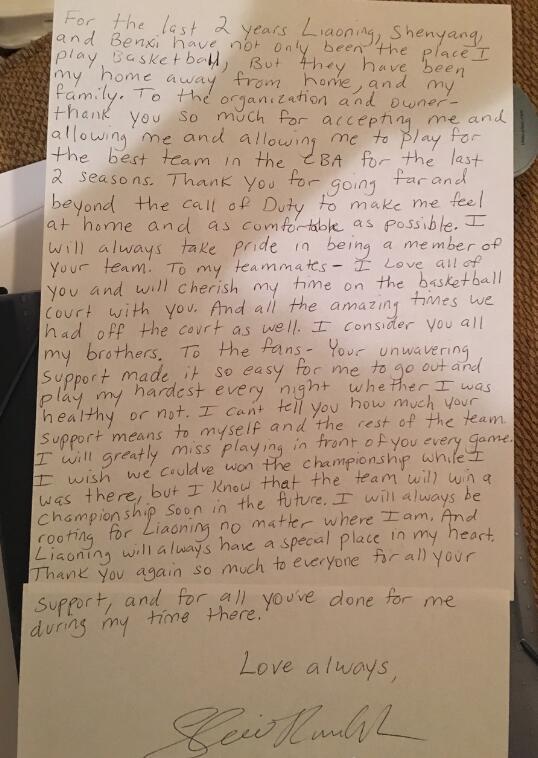 For the last 2 years Liaoning, Shenyang,
and Benxi have not only been the place I
play Basketball, But they have been
my home away from home, and my
family. To the organization and owner-
thank you so much for accepting me and
allowing me and allowing me to play for
the best team in the CBA for the last
2 seasons. Thank you for going far and
beyond the call of Duty to make me feel
at home and as comfortable as possible. I
will always take pride in being a member of
your team. To my teammates- I Love all of
you and will cherish my time on the basketball
court with you. And all the amazing times we
had off the court as well. I consider you all
my brothers. To the fans- Your unwavering
support made it so easy for me to go out and
play my hardest every night whether I was
healthy or not. I cant tell you how much your
support means to myself and the rest of the team.
I will greatly miss playing in front of you every game.
I wish we couldve won the championship while I
was there, but I know that the team will win a
championship soon in the future. I will always be
rooting for Liaoning no matter where I am. And
Liaoning will always have a special place in my heart.
Thank you again so much to everyone for all your
support, and for all you've done for me
during my time there.
Love always,